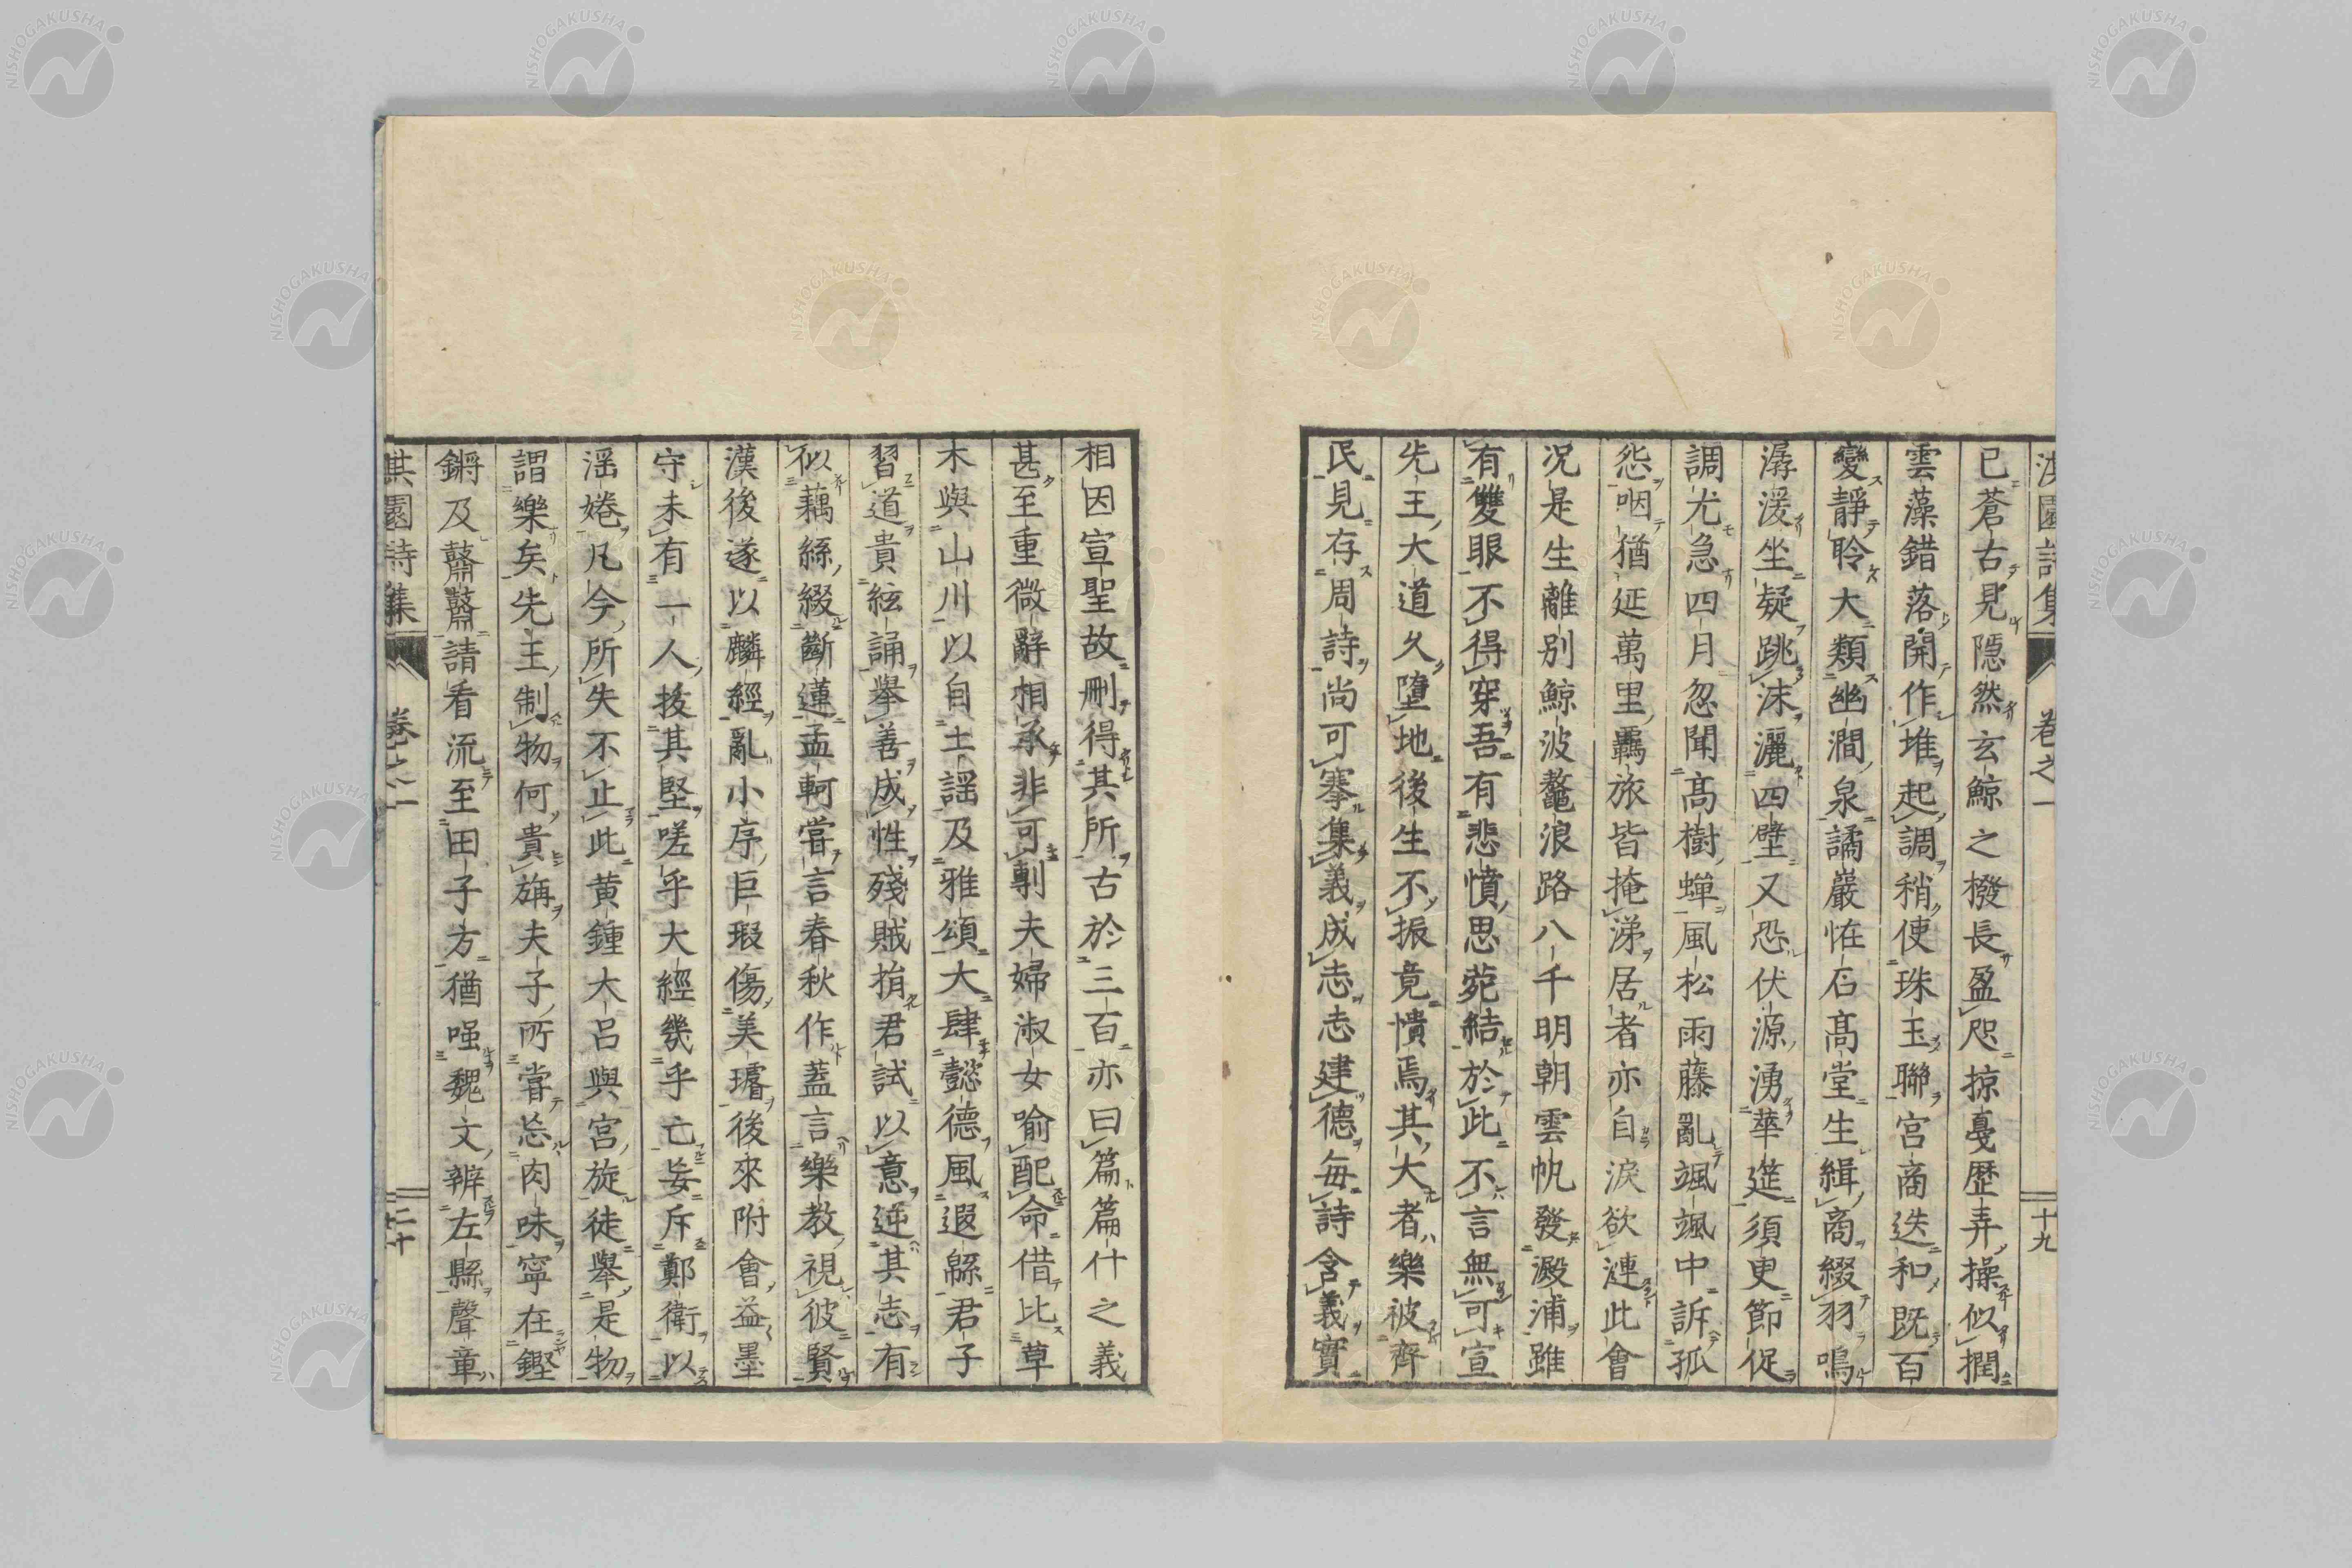 淇園詩集 卷之一 十九
已蒼古見隱然玄鯨之撥長盈咫掠戞歷弄操似撊
雲藻錯落開作堆起調稍使珠玉聯宮商迭和既百
變靜聆大類幽澗泉譎巖恠石高堂生緝商綴羽鳴
潺湲坐疑跳沫灑四壁又恐伏源湧華筵須更節促
調尤急四月忽聞高樹蟬風松雨藤亂颯颯中訴孤
怨咽猶延萬里羈旅皆掩涕居者亦自淚欲漣此會
況是生離別鯨波鼇浪路八千明朝雲帆發澱浦雖
有雙眼不得穿吾有悲憤思菀結於此不言無可宣
先王大道久墮地後生不振竟憒焉其大者樂被齊
民見存周詩尚可搴集義成志志建德每詩含義實
相因宣聖故刪得其所古於三百亦曰篇篇什之義
甚至重微辭相承非可剸夫婦淑女喻配命借比草
木與山川以自土謡及雅頌大肆懿德風遐緜君子
習道貴絃誦舉善成性殘賊捐君試以意逆其志有
似藕絲綴斷蓮孟軻嘗言春秋作蓋言樂教視彼賢
漢後遂以麟經亂小序巨瑕傷美璿後來附會益墨
守未有一人拔其堅嗟乎大經幾乎亡妄斥鄭衛以
淫婘凡今所失不止此黄鍾大呂與宮旋徒舉是物
謂樂矣先王制物何貴旃夫子所嘗忘肉味寧在鏗
鏘及鼛鼛請看流至田子方猶强魏文辨左縣聲章
淇園詩集 卷之一 二十